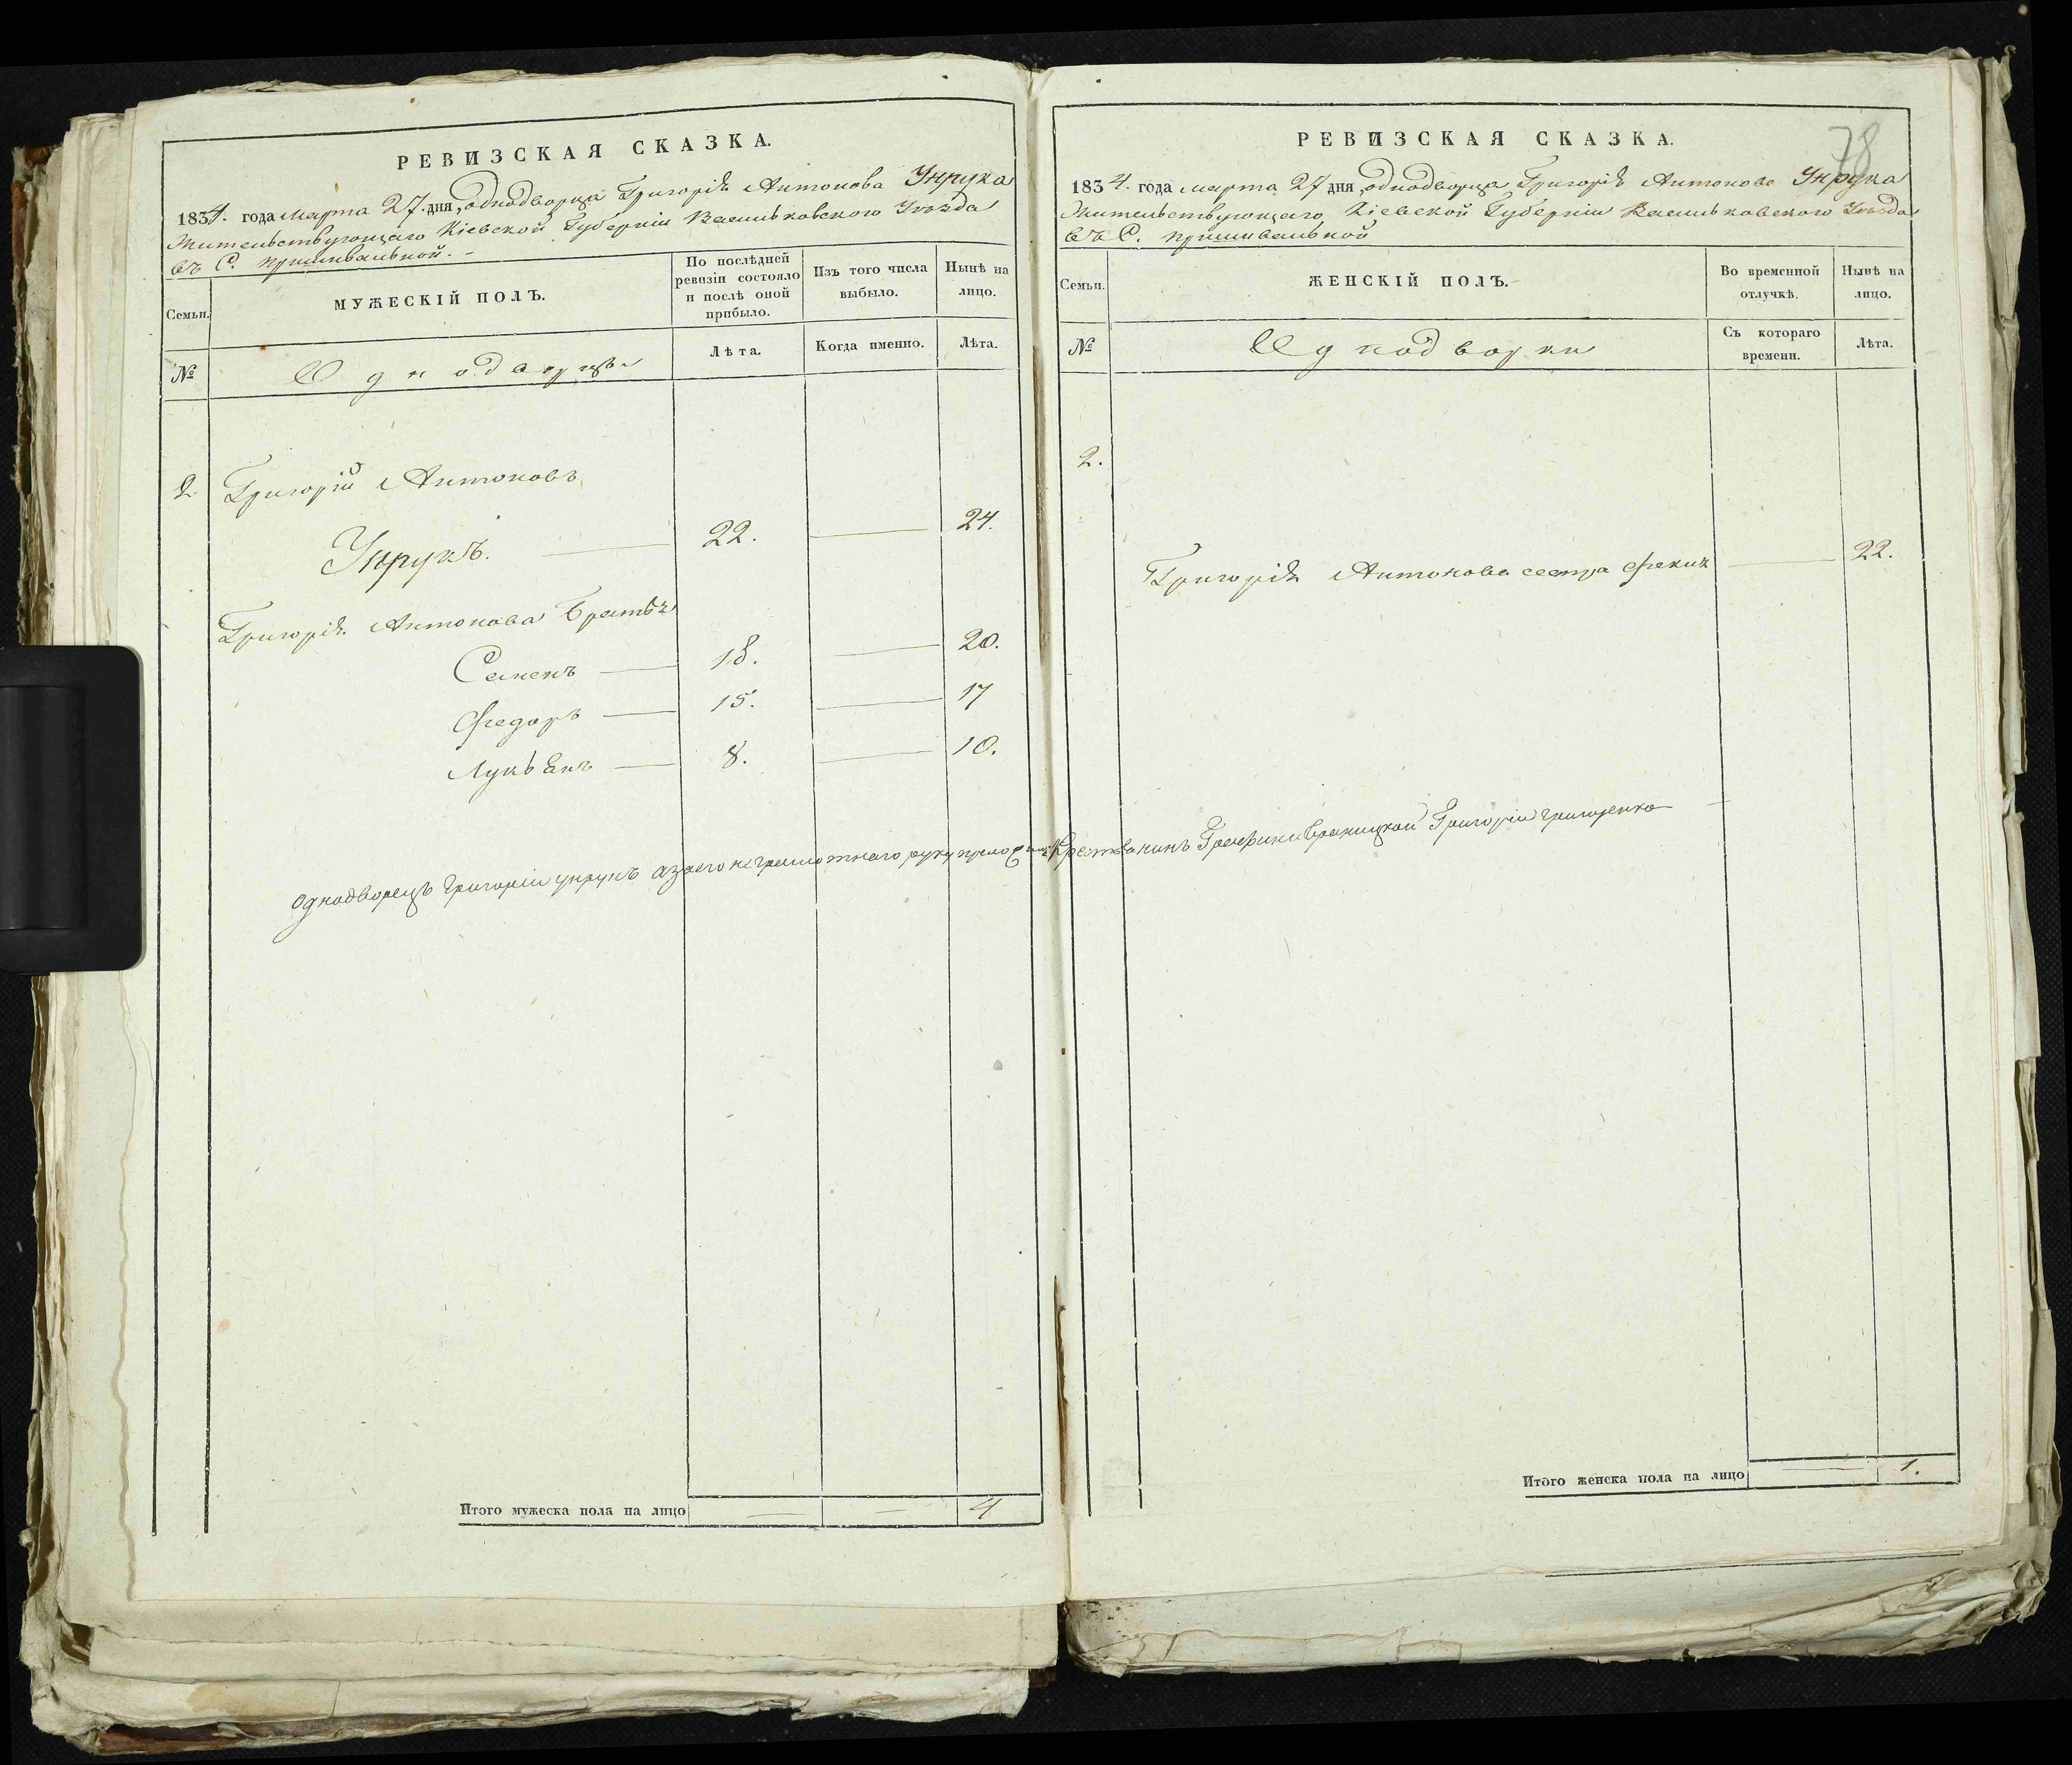 РЕВИЗСКАЯ СКАЗКА.
1834. года Марта 27. дня, однодворца Григорія Антонова Унрука
Жительствующаго Кіевской Губерніи Васильковского Уезда
въ С. Пришивальной. -
Семьи.
МУЖЕСКІЙ ПОЛЪ.
По послѣдней ревизіи состояло и послѣ оной прибыло.
Изъ того числа выбыло.
Нынѣ на лицо.
№
Однодворцы
Лѣта.
Когда именно.
Лѣта.
2 Григорій Антоновъ
Унрукъ. 22. 24.
Григорія Антонова Братья
Семенъ 18. 20.
Федоръ 15. 17
Лукьянъ 8. 10.
Итого мужеска пола на лицо 4
78
РЕВИЗСКАЯ СКАЗКА.
1834. года Марта 27 дня, однодворца Григорія Антонова Унрука
Жительствующаго Кіевской Губерніи Васильковского Уезда
въ С. Пришивальной
Семьи.
ЖЕНСКІЙ ПОЛЪ.
Во временной отлучкѣ.
Нынѣ на лицо.
№
Однодворки
Съ котораго времени.
Лѣта.
2.
Григорія Антонова сестра 22.
однодворецъ Григоріи унрукъ а заего неграмотнаго руку приложилъ Крестьянинъ Графини Браницкой Григоріи Грищенко
Итого женска пола на лицо 1.